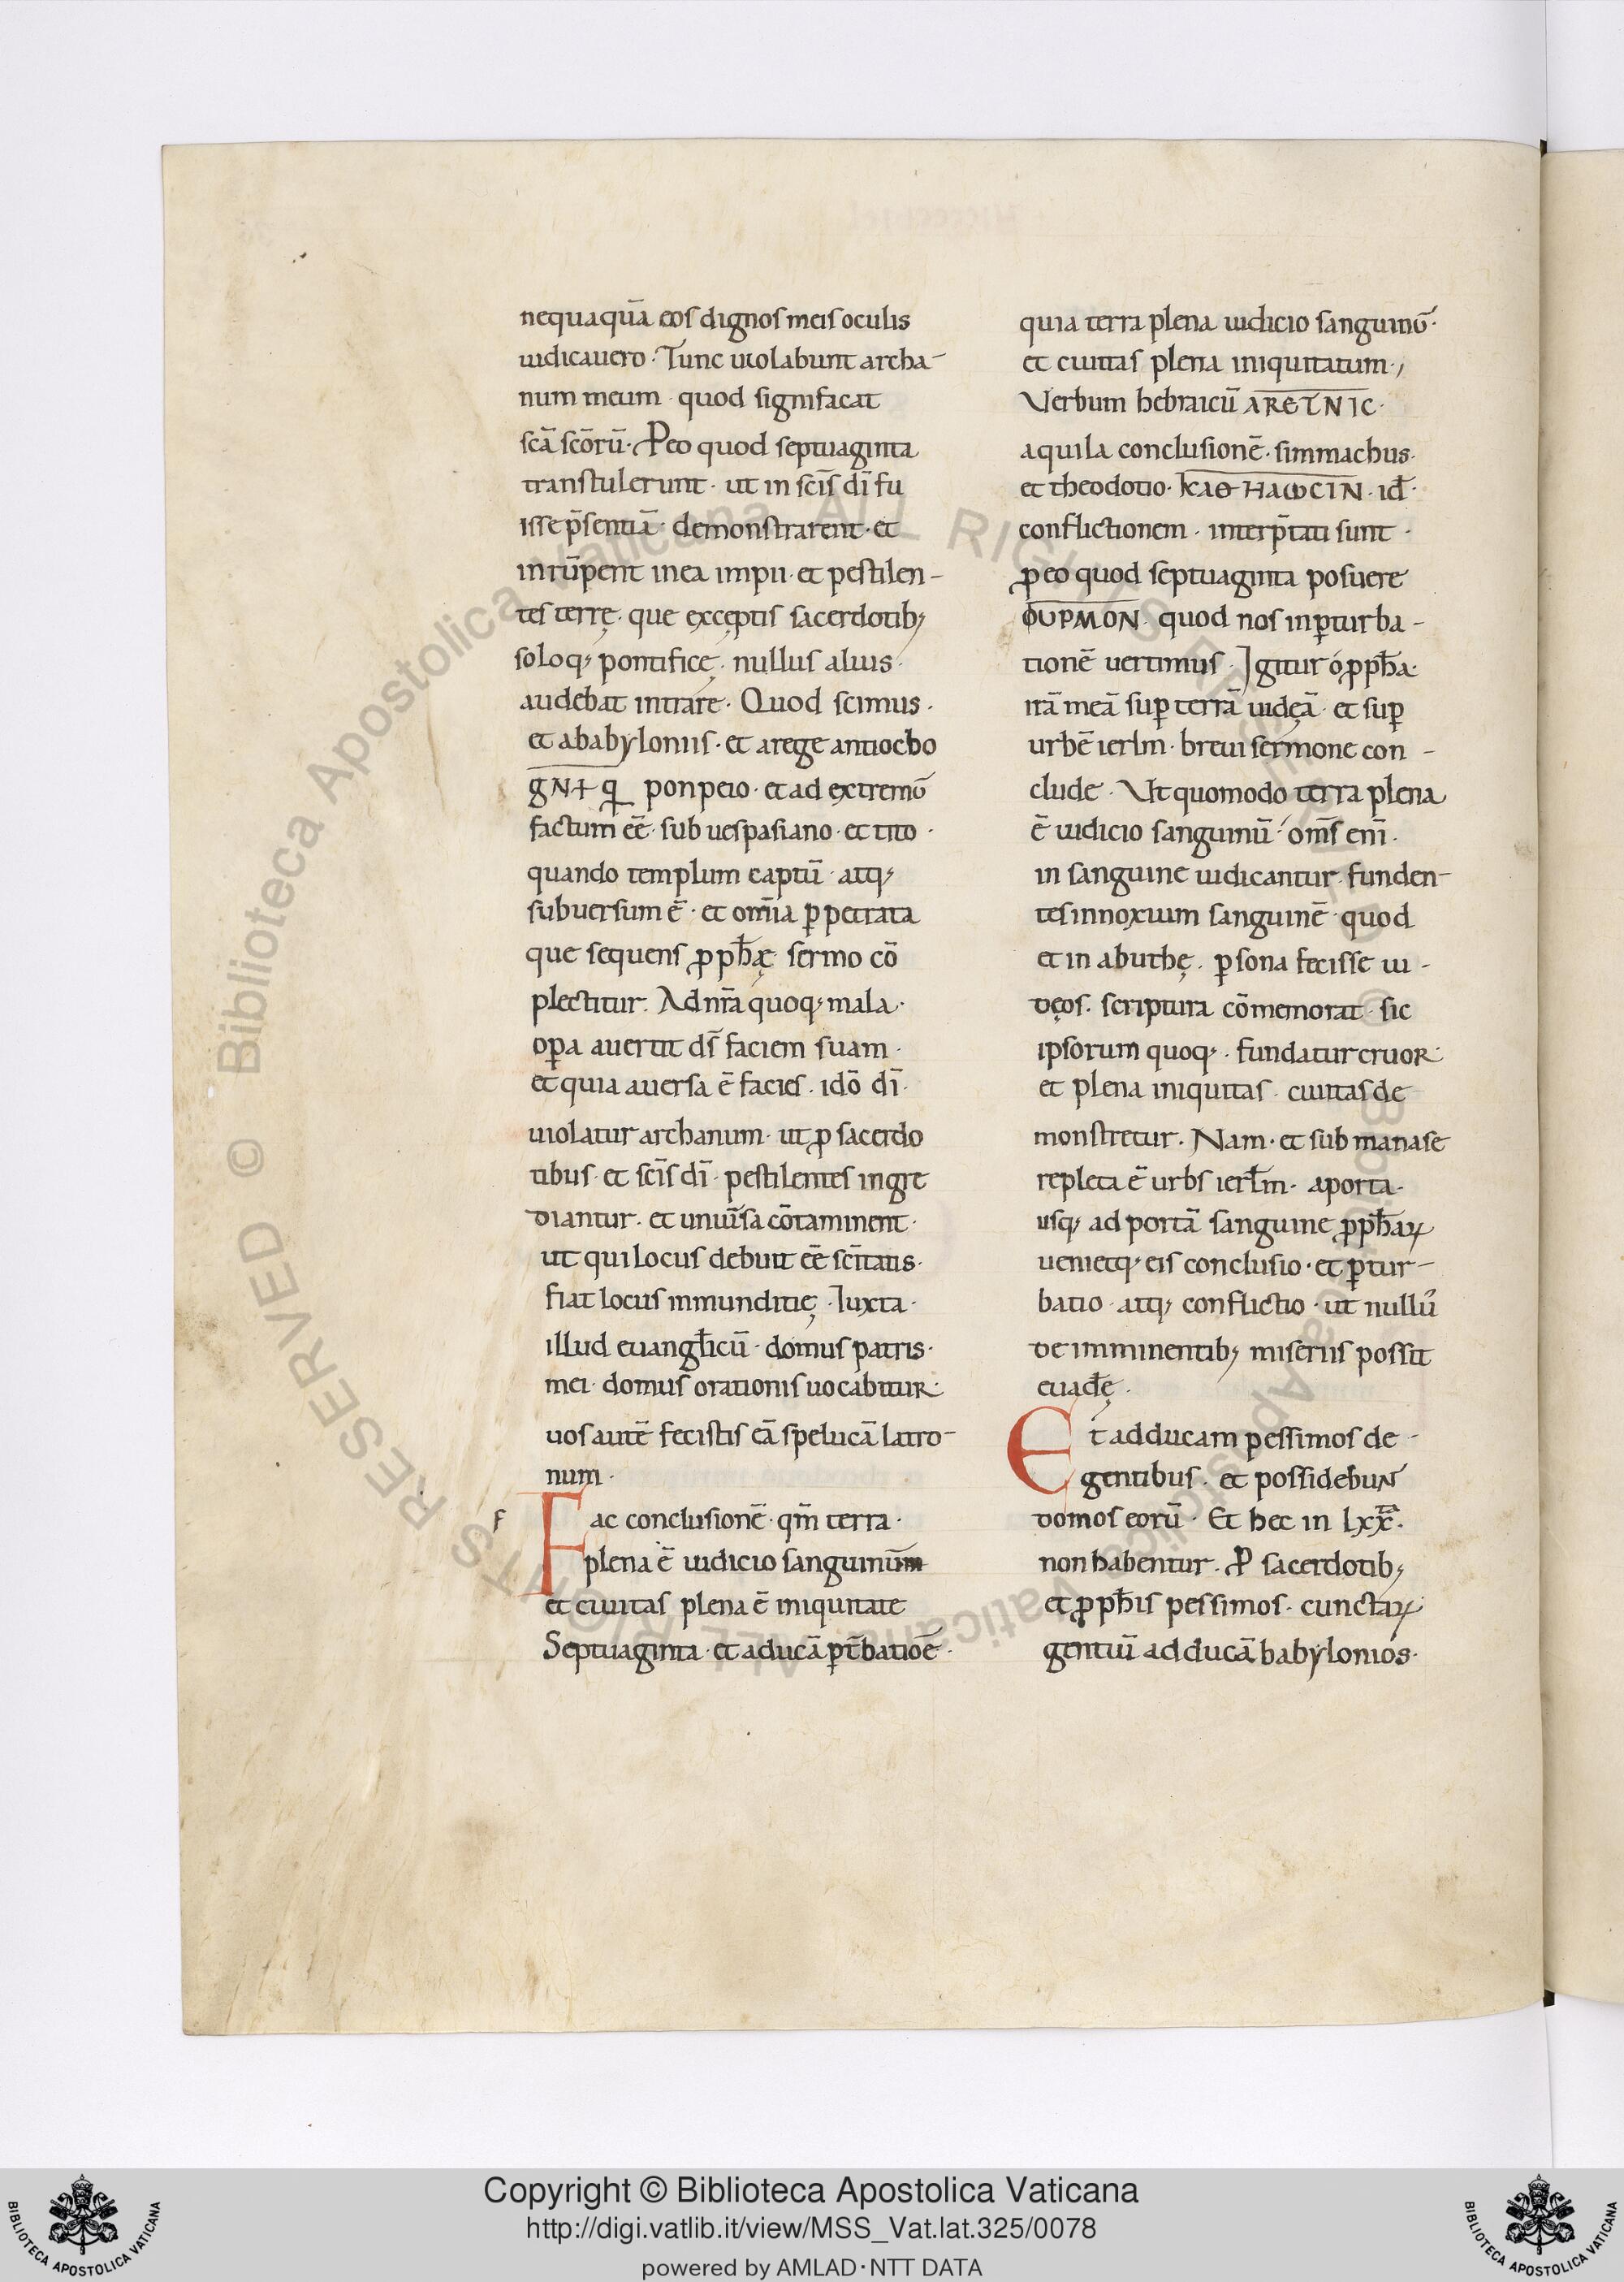 nequaquā eos dignos meis oculis
iudicauero · Tunc uiolabunt archa-
num meum · quod significat
sc̄ā sc̄ōrū · P eo quod septuaginta
transtulerunt · ut in sc̄is dī fu
isse p̄sentiā · demonstrarent · et
inrūpent in ea impii · et pestilen-
tes terrę · que exceptis sacerdotib;
soloq; pontificę · nullus alius ·
audebat intrare · Quod scimus ·
et ababyloniis · et arege antiocho
ponpeio · et ad extremū
factum eē · sub uespasiano · et tito ·
quando templum captū · atq;
subuersum ē · et om̄ia ꝑpetrata
que sequens ꝓph̄æ sermo cō
plectitur. Ad nr̄a quoq; mala ·
oꝑa auertit dś faciem suam ·
et quia auersa ē facies · idō dī ·
uiolatur archanum · ut ꝓ sacerdo
tibus · et sc̄is dī · pestilentes ingre
diantur · et uniūsa cōtaminent ·
ut qui locus debuit eē sc̄itatis ·
fiat locus inmunditię · Iuxta ·
illud euangl̄icū · domus patris ·
mei · domus orationis uocabitur ·
uos autē fecistis eā speluca̅ latro-
num ·
f Fac conclusionē · qm̄ terra ·
plena ē iudicio sanguinūm
et ciuitas plena ē iniquitate
Septuaginta · et aducā ꝑt̄batioē ·
quia terra plena iudicio sanguinū ·
et ciuitas plena iniquitatum ·,
Verbum hebraicū ARETNIC ·
aquila conclusionē · simmachus ·
et theodotio · KAΘHAωCIN · id̄ ·
conflictionem · interp̄tati sunt ·
ꝓ eo quod septuaginta posuere
ΦUPMON · quod nos inꝑturba-
tionē uertimus · Igitur ó ꝓph̄a ·
irā meā suꝑ terrā iudęā · et suꝑ
urbē ierlm̄ · breui sermone con-
clude · Ut quomodo terra plena
ē iudicio sanguinū · om̄s eni̅ ·
in sanguine iudicantur · funden-
tes innoxium sanguinē · quod
et in abuthę · ꝑsona fecisse iu-
dęos · scriptura cōmemorat · sic
ipsorum quoq; · fundatur cruor ·
et plena iniquitas · ciuitas de
monstretur · Nam · et sub manase
repleta ē urbs ierl̄m · aporta ·
usq; ad portā sanguine ꝓph̄aꝝ
uenietq; eis conclusio · et ꝑtur-
batio · atq; conflictio · ut nullū
de imminentib; miseriis possit
euad̄ę ·
Et adducam pessimos de-
gentibus · et possidebuN
domos eorū · Et hec in lxx̄ ·
non habentur · P sacerdotib;
et ꝓph̄is pessimos · cunctaꝝ
gentiū adducā babylonios ·
Copyright © Biblioteca Apostolica Vaticana
http://digi.vatlib.it/view/MSS_Vat.lat.325/0078
powered by AMLAD·NTT DATA
BIBLIOTECA APOSTOLICA VATICANA
BIBLIOTECA APOSTOLICA VATICANA